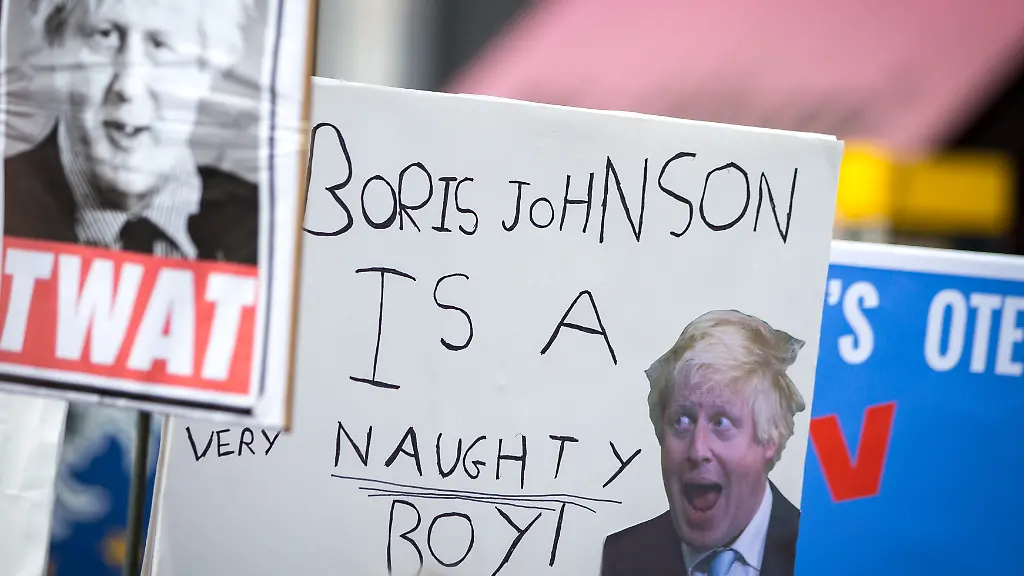 TWAT
BORIS JOHNSON
IS A
VERY NAUGHTY
BOY!
'S OTE
V